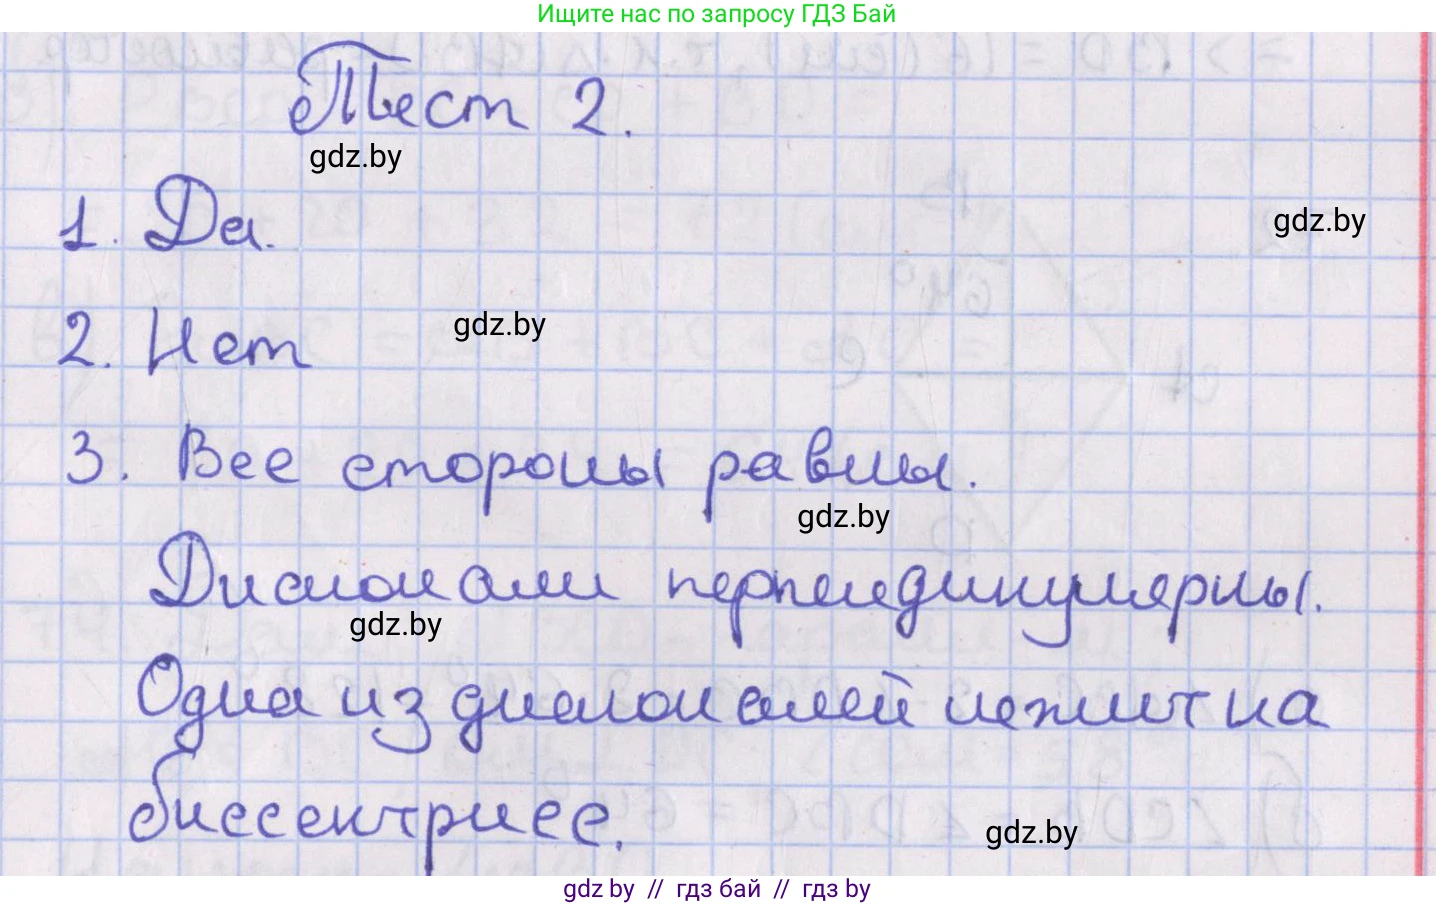 Ищите нас по запросу ГДЗ Бай
Тест 2.
gdz.by
1. Да.
gdz.by
2. Нет
gdz.by
3. Все стороны равны.
gdz.by
Диагонали перпендикулярны.
gdz.by
Одна из диагоналей лежит на
биссектрисе.
gdz.by
gdz.by // гдз бай // гдз by